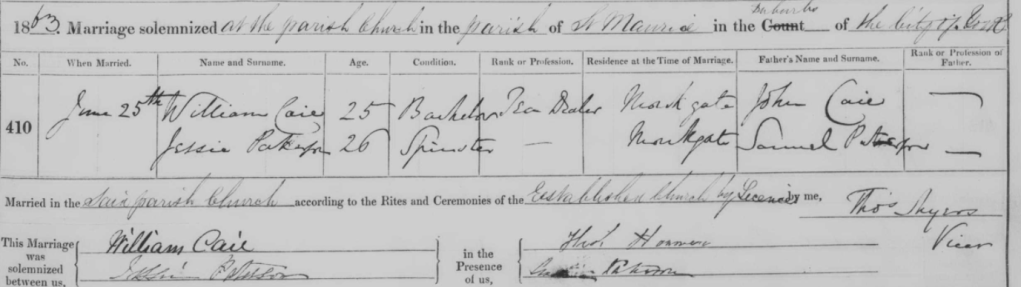 1863. Marriage solemnized at the parish Church in the parish of St Maurice in the Suburbs Count of the City of York
No. When Married. Name and Surname. Age. Condition. Rank or Profession. Residence at the Time of Marriage. Father's Name and Surname. Rank or Profession of Father.
410 June 25th William Caie 25 Bachelor Tea Dealer Monkgate John Caie —
Jessie Paterson 26 Spinster — Monkgate Samuel Paterson —
Married in the Said parish Church according to the Rites and Ceremonies of the Established Church by Licence by me, Thos Myers
Vicar
This Marriage was solemnized between us, William Caie
Jessie Paterson
in the Presence of us, Paterson